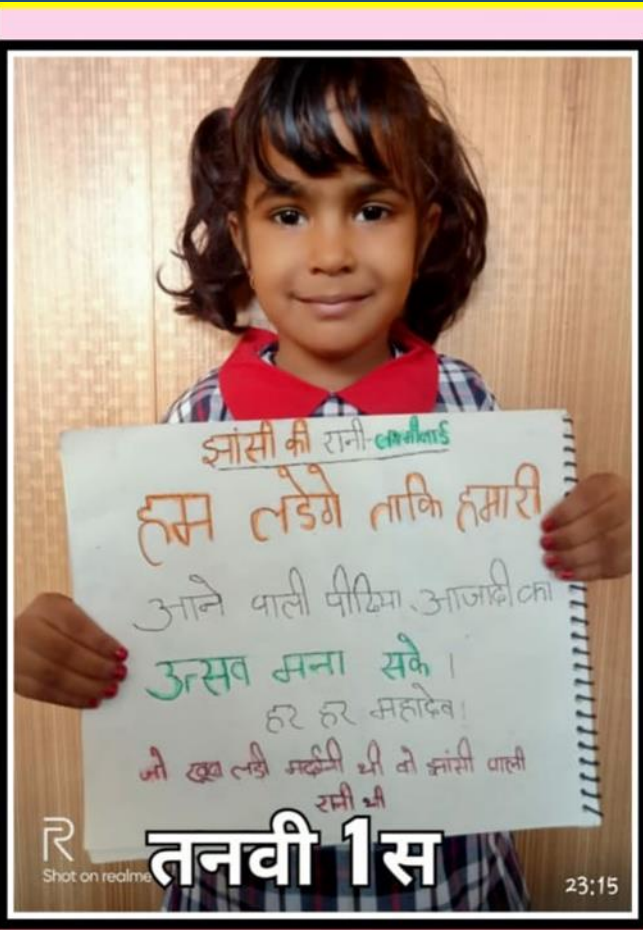 झांसी की रानी लक्ष्मीबाई
हम लडेगे ताकि हमारी
आने वाली पीढिया आजादी का
उत्सव मना सके ।
हर हर महादेव!
जो खूब लडी मर्दानी थी वो झांसी वाली
रानी थी
तनवी 1स
R
Shot on realme
23:15